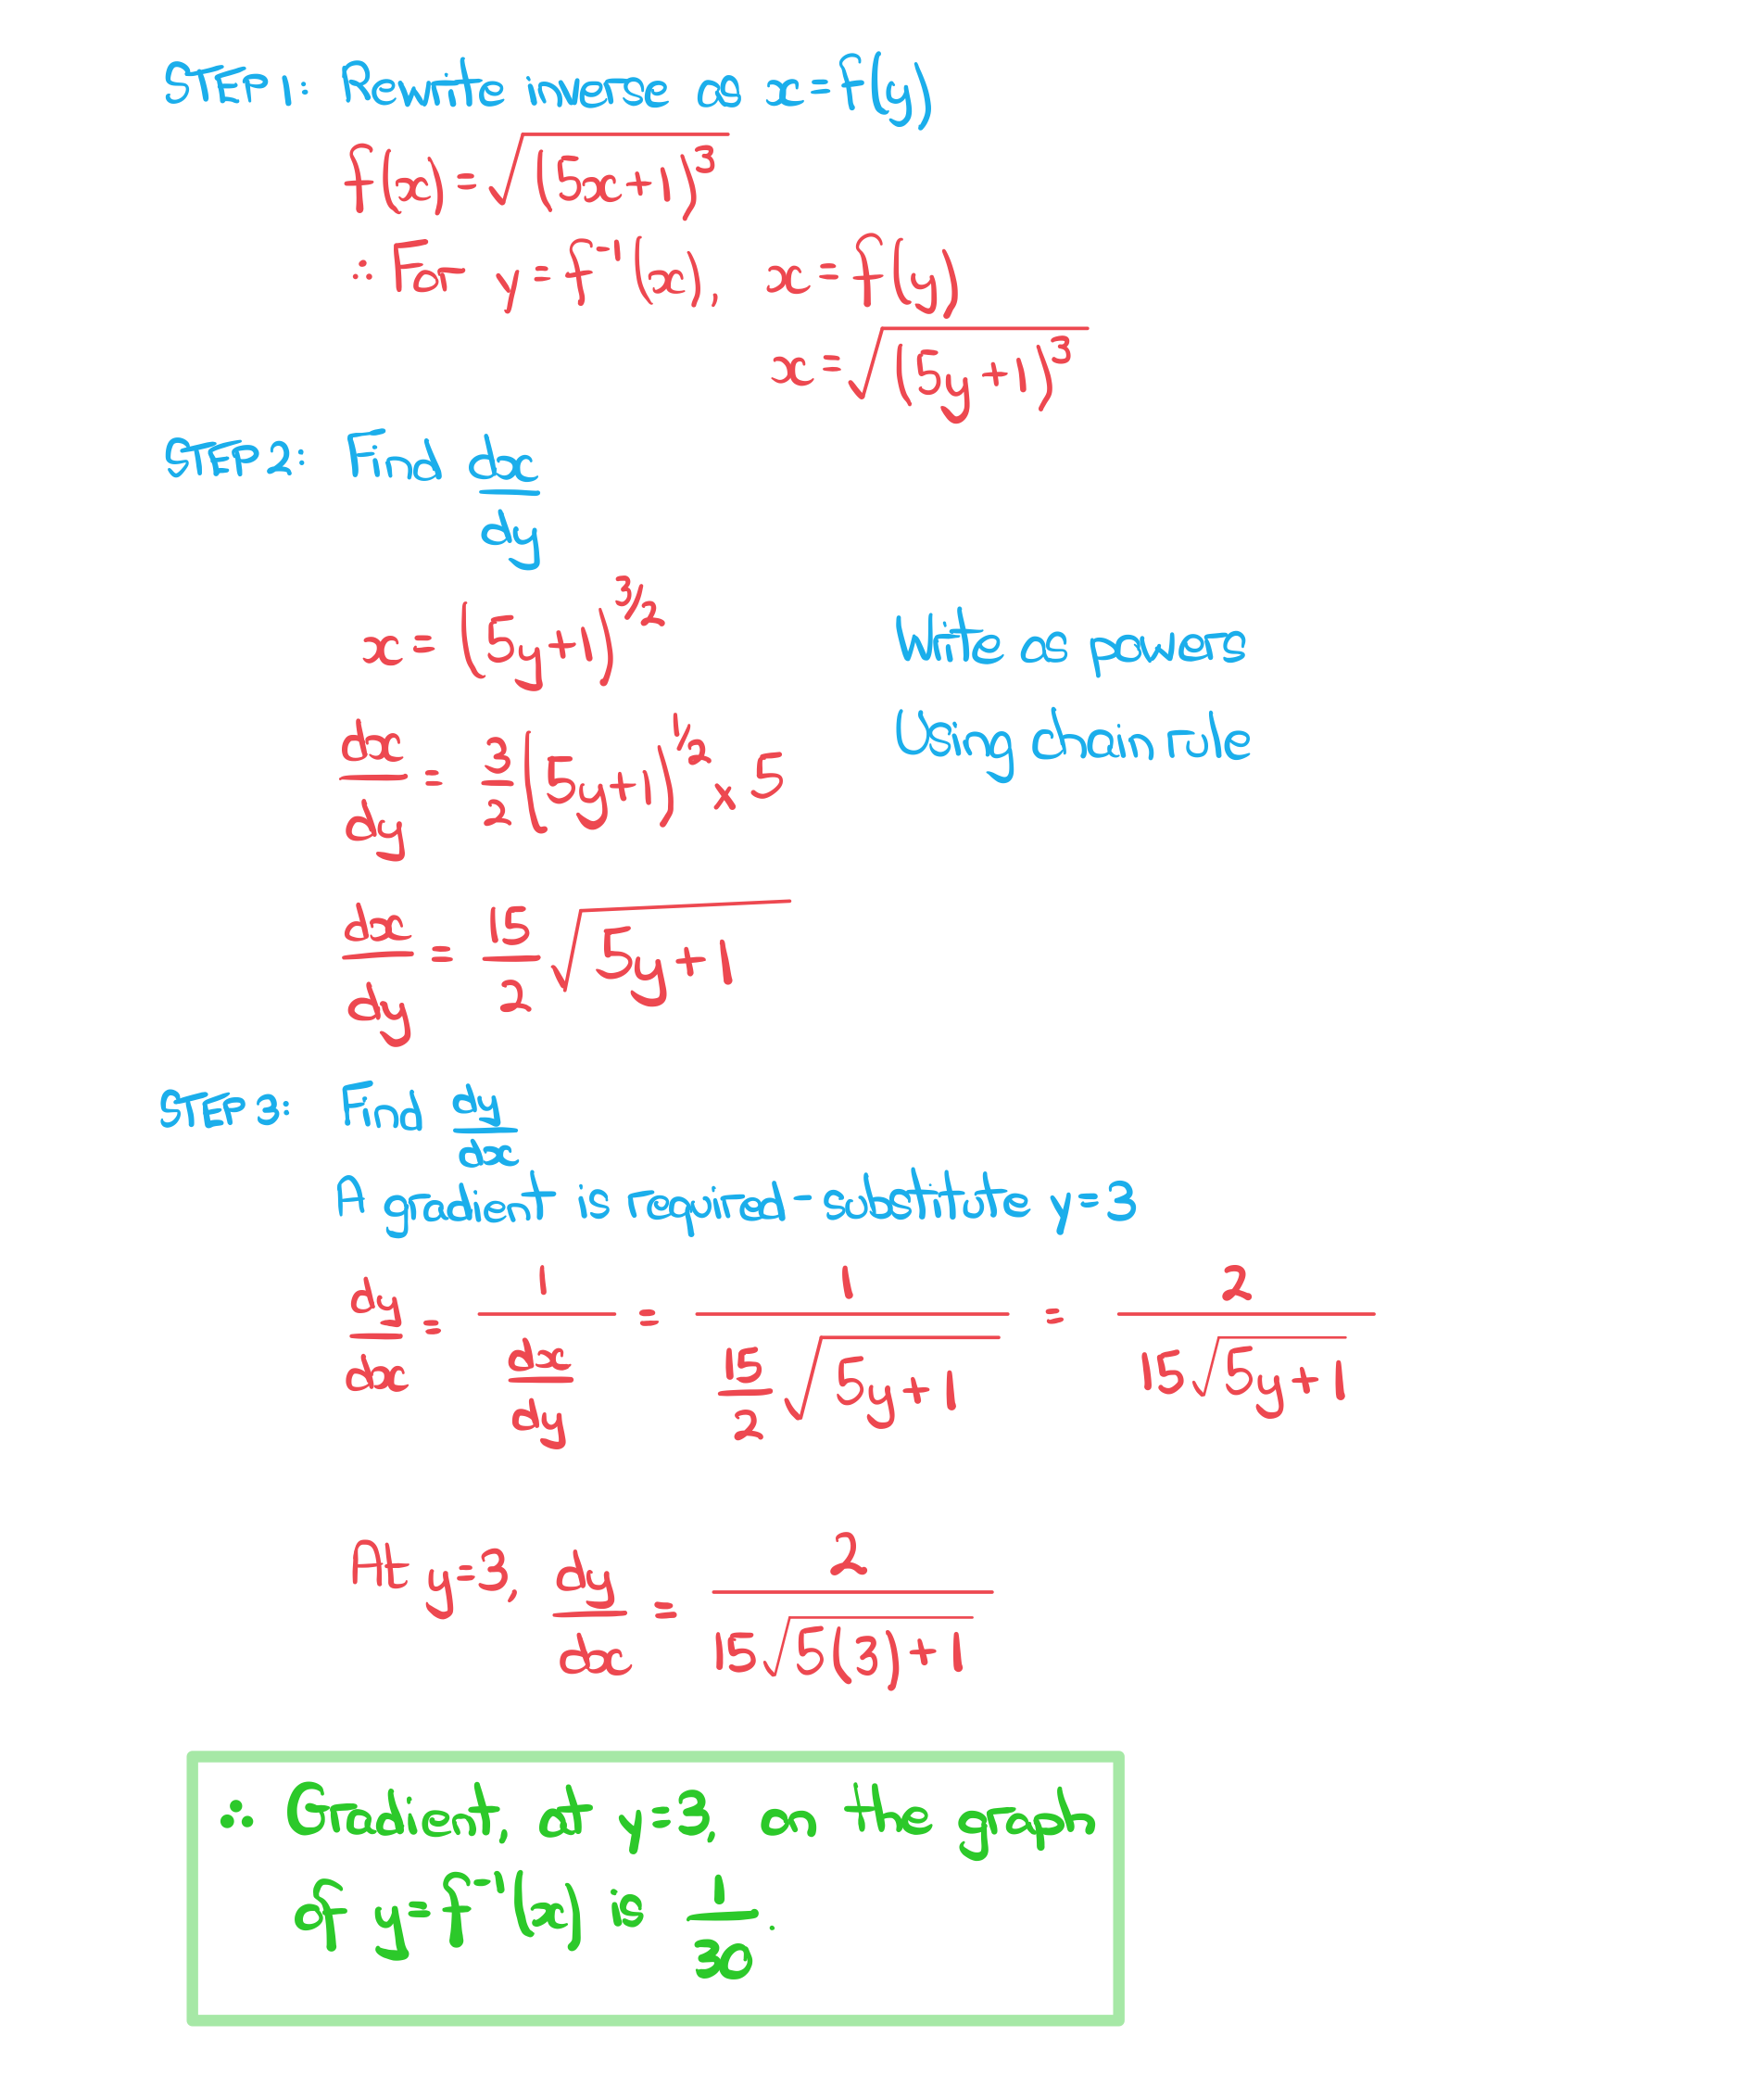 STEP 1: Rewrite inverse as x=f(y)
f(x)=√(5x+1)³
∴ For y=f⁻¹(x), x=f(y)
x=√(5y+1)³
STEP 2: Find dx/dy
x=(5y+1)^3/2 Write as powers
dx/dy = 3/2(5y+1)^1/2 × 5 Using chain rule
dx/dy = 15/2 √5y+1
STEP 3: Find dy/dx
A gradient is required - substitute y=3
dy/dx = 1/(dx/dy) = 1/(15/2 √5y+1) = 2/(15√5y+1)
At y=3, dy/dx = 2/(15√5(3)+1)
∴ Gradient, at y=3, on the graph
of y=f⁻¹(x) is 1/30.